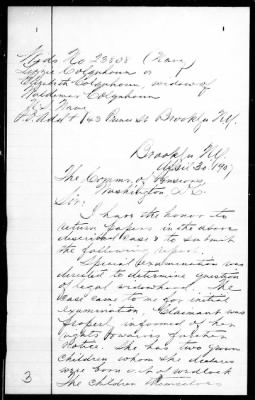 Wids No 23808 (Navy)
Lizzie Colquhoun or
Elizabeth Colquhoun, widow of
Waldemar Colquhoun
U.S. Navy
P.O. Add + 143 Prince St Brooklyn NY.
Brooklyn NY.
April 30 190
The Commr. of Pensions
Washington D.C.
Sir:
I have the honor to
return papers in the above
described case & to submit
the following report.
Special Examination was
directed to determine question
of legal widowhood. The
case came to me for initial
examination. Claimant was
properly informed of her
rights & waiving further
notice. She has two grown
children whom she declares
were born out of wedlock
The children themselves
3